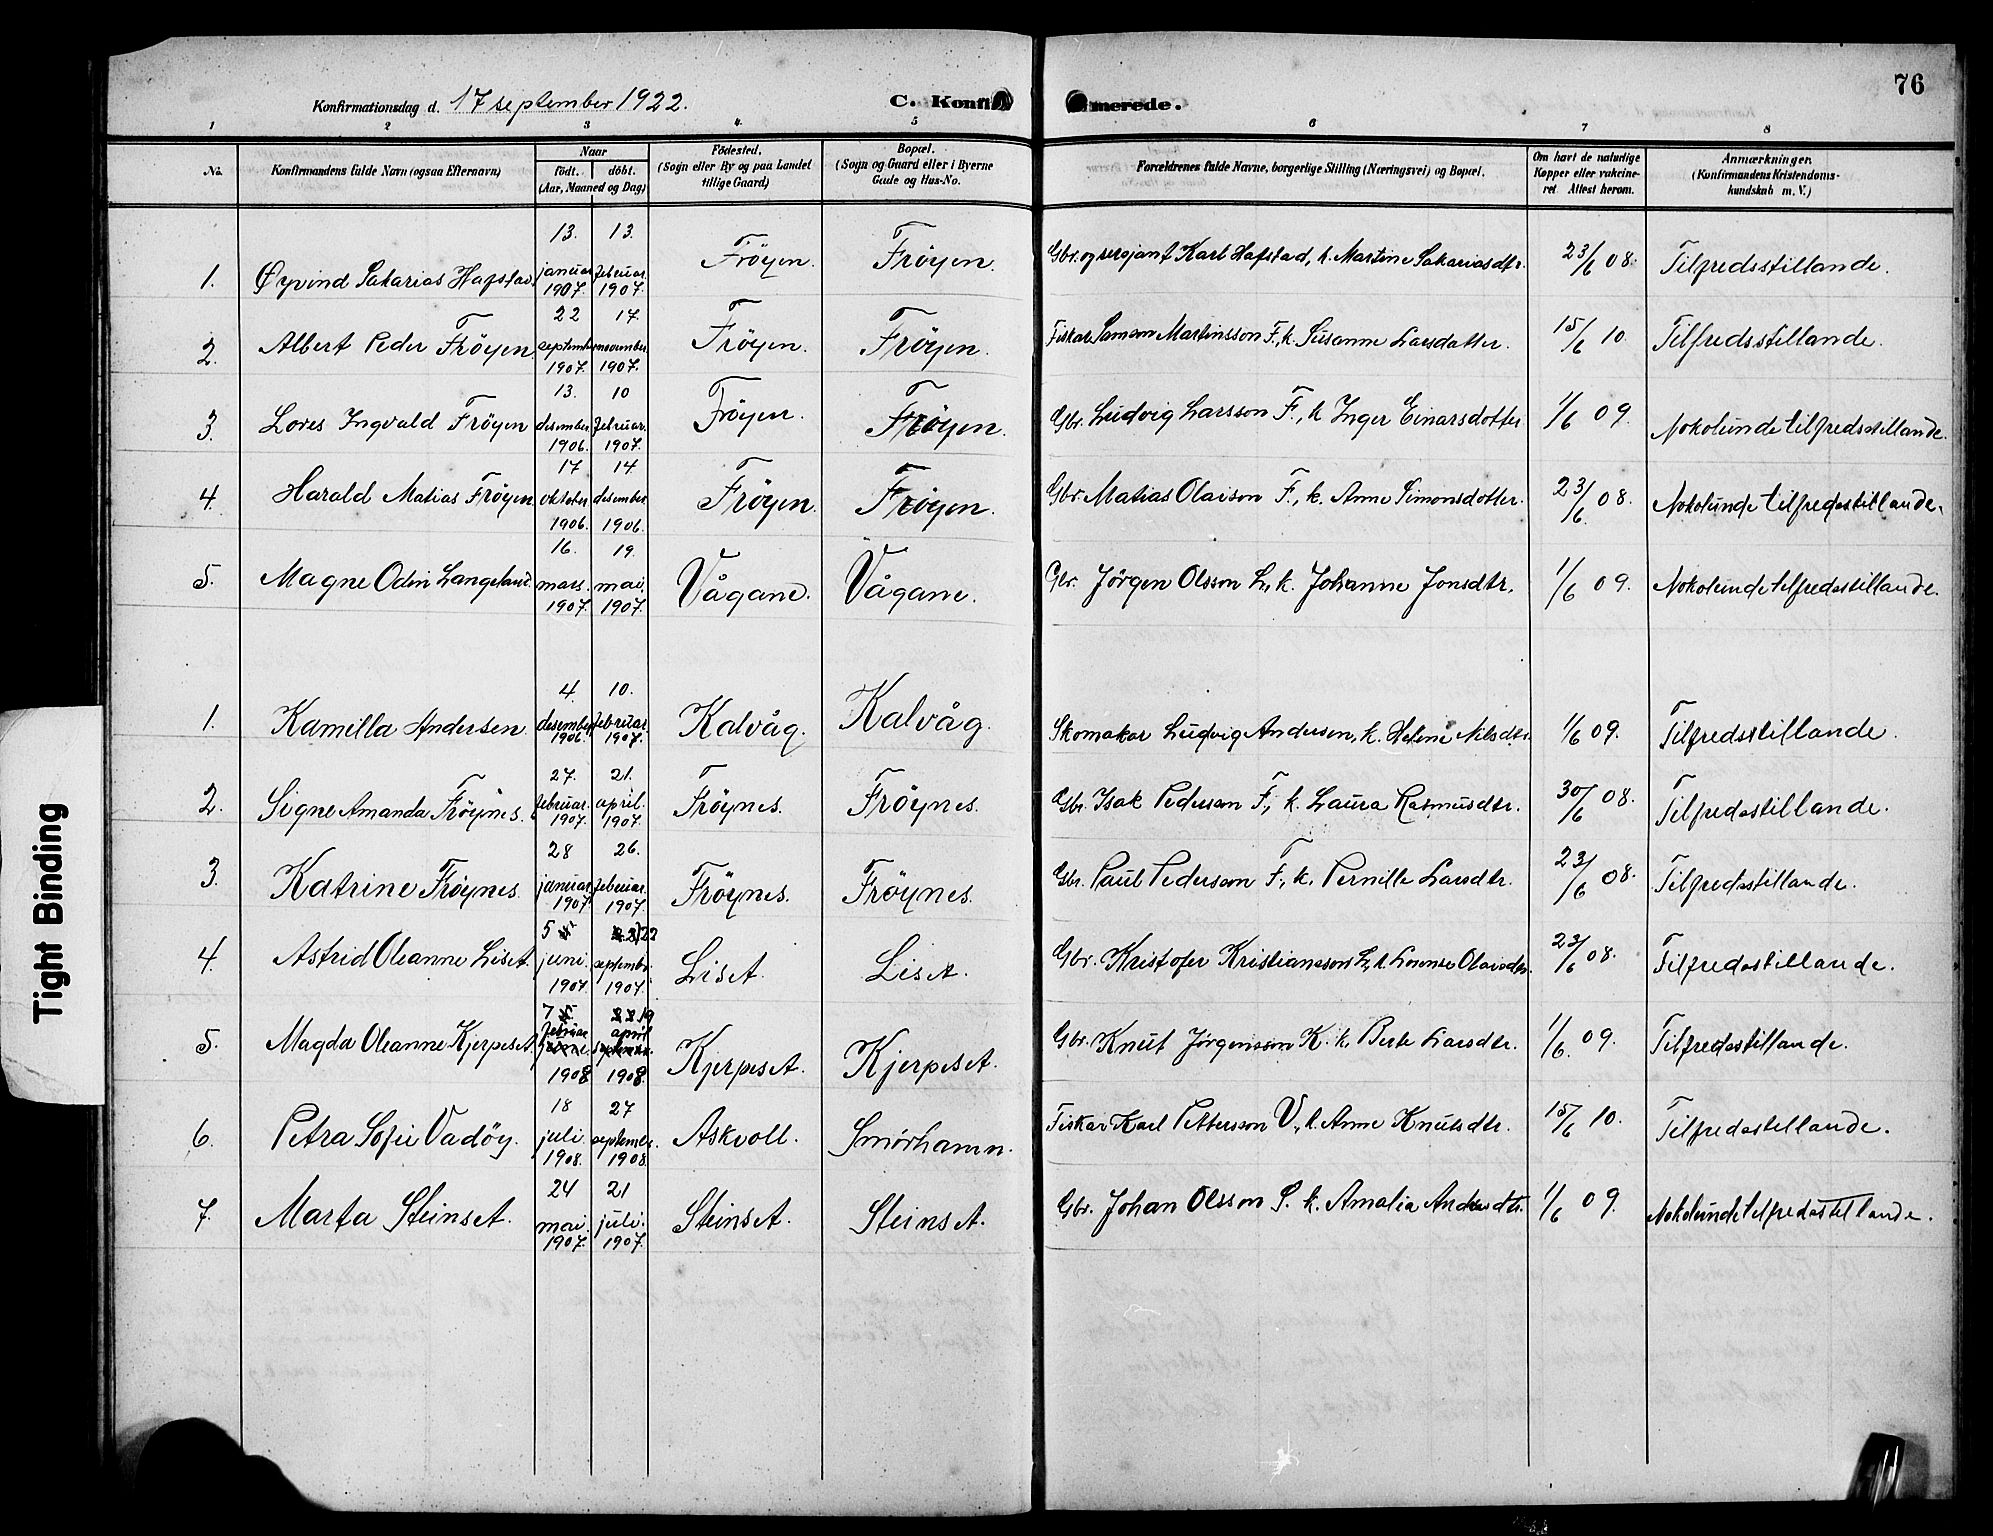 76
Konfirmationsdag d. 17 september 1922. C. Konfirmerede.
1 2 3 4 5 6 7 8
No. Konfirmandens fulde Navn (ogsaa Efternavn) Naar født. døbt. (Aar, Maaned og Dag) Fødested. (Sogn eller By og paa Landet tillige Gaard) Bopæl. (Sogn og Gaard eller i Byerne Gade og Hus-No. Forældrenes fulde Navne, borgerlige Stilling (Næringsvei) og Bopæl. Om havt de naturlige Kopper eller vakcineret Attest herom. Anmærkninger. (Konfirmandens Kristendomskundskab m. V.)
1. Øyvind Sakarias Hafstad 13. januar 1907. 13. februar 1907. Fröyen. Fröyen. Gbr. og sersjant Karl Hafstad, k. Martine Sakariasdtr. 23/6 08. Tilfredsstillande.
2. Albert Peder Fröyen 22 septembr 1907. 17. november. 1907. Fröyen. Fröyen. Fiskar Samson Martinsson F., k. Susanne Larsdatter. 15/6 10. Tilfredsstillande.
3. Lores Ingvald Fröyen 13. desember 1906. 10 februar. 1907. Fröyen. Fröyen. Gbr. Ludvig Larsson F., k Inger Einarsdotter 1/6 09. Nokolunde tilfredsstillande.
4. Harald Matias Fröyen 17 oktober 1906. 14. desember 1906. Fröyen. Fröyen. Gbr. Matias Olaison F., k. Anne Simonsdotter. 23/6. 08. Nokolunde tilfredsstillande.
5. Magne Odin Langeland. 16. mars. 1907. 19. mai. 1907. Vågane. Vågane. Gbr. Jörgen Olsson L., k. Johanne Jonsdtr. 1/6 09. Nokolunde tilfredsstillande.
1. Kamilla Andersen 4 desember 1906. 10. februar. 1907. Kalvåg. Kalvåg. Skomakar Ludvig Andersen, k. Helene Nilsdtr. 1/6 09. Tilfredsstillande.
2. Signe Amanda Fröynes. 27. februar. 1907. 21. april. 1907 Fröynes. Fröynes. Gbr. Isak Pederson F., k. Laura Rasmusdtr. 30/6 08. Tilfredsstillande.
3. Katrine Fröynes. 28 januar. 1907. 26. februar. 1907. Fröynes. Fröynes. Gbr. Paul Pederson F., k. Pernille Larsdtr. 23/6 08. Tilfredsstillande.
4. Astrid Oleanne Liset. 5 juni. 1907. 22 septembr. 1907. Liset. Liset. Gbr. Kristofer Kristiansson L., k. Lorense Olaisdtr. 23/6 08. Tilfredsstillande.
5. Magda Oleanne Kjerpeset. 7 februar juni 1908 19 april september. 1908. Kjerpeset. Kjerpeset. Gbr. Knut Jörgensson K. k. Berte Larsdtr. 1/6. 09. Tilfredsstillande.
6. Petra Sofie Vadöy. 18 juli. 1908. 27 septembr. 1908. Askvoll. Smörhamn. Fiskar Karl Pettersson V., k. Anne Knutsdtr. 15/6 10. Tilfredsstellande.
7. Marta Steinset. 24 mai. 1907. 21 juli. 1907. Steinset. Steinset. Gbr. Johan Olsson S. k. Amalia Andersdtr. 1/6 09. Nokolunde tilfredsstellande.
Tight Binding